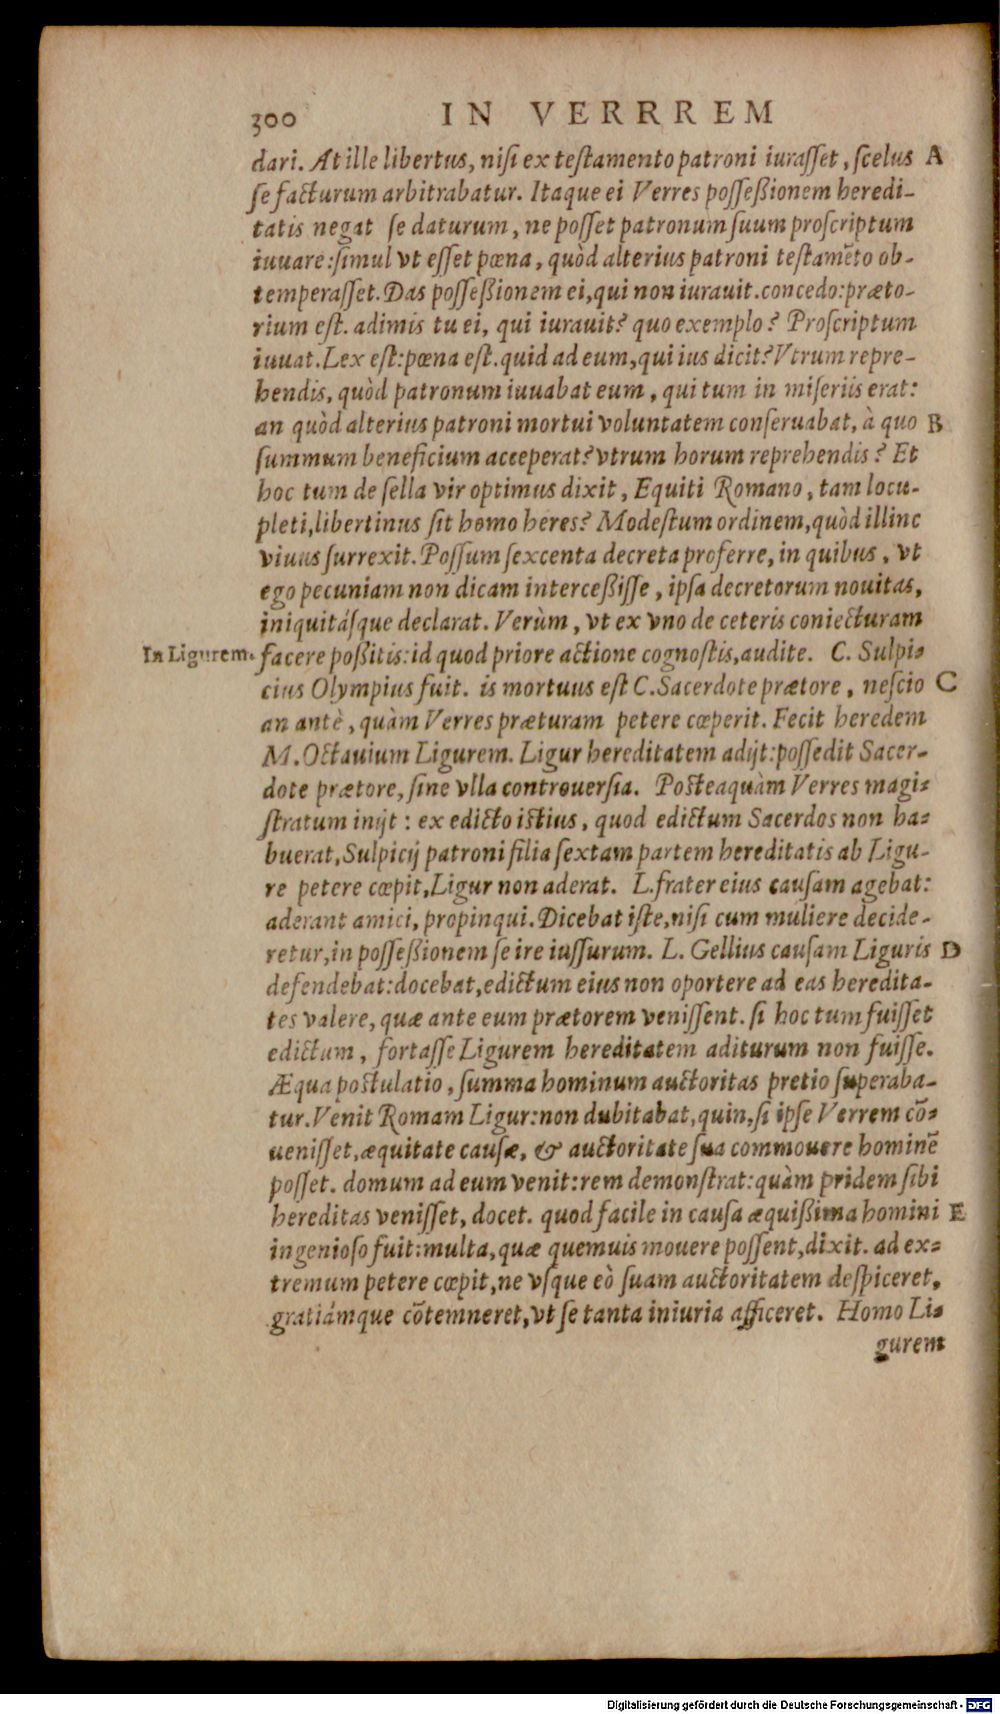 300 IN VERRREM
dari. At ille libertus, nisi ex testamento patroni iurasset, scelus A
se facturum arbitrabatur. Itaque ei Verres possessionem heredi-
tatis negat se daturum, ne posset patronum suum proscriptum
iuuare: simul vt esset pœna, quòd alterius patroni testamẽto ob-
temperasset. Das possessionem ei, qui non iurauit. concedo: præto-
rium est. adimis tu ei, qui iurauit? quo exemplo? Proscriptum
iuuat. Lex est: pœna est. quid ad eum, qui ius dicit? Vtrum repre-
hendis, quòd patronum iuuabat eum, qui tum in miseriis erat:
an quòd alterius patroni mortui voluntatem conseruabat, à quo B
summum beneficium acceperat? vtrum horum reprehendis? Et
hoc tum de sella vir optimus dixit, Equiti Romano, tam locu-
pleti, libertinus sit homo heres? Modestum ordinem, quòd illinc
viuus surrexit. Possum sexcenta decreta proferre, in quibus, vt
ego pecuniam non dicam intercessisse, ipsa decretorum nouitas,
iniquitásque declarat. Verùm, vt ex vno de ceteris coniecturam
In Ligurem. facere possitis: id quod priore actione cognostis, audite. C. Sulpi-
cius Olympius fuit. is mortuus est C. Sacerdote prætore, nescio C
an antè, quàm Verres præturam petere cœperit. Fecit heredem
M. Octauium Ligurem. Ligur hereditatem adijt: possedit Sacer-
dote prætore, sine vlla controuersia. Posteaquàm Verres magi-
stratum inijt: ex edicto istius, quod edictum Sacerdos non ha-
buerat, Sulpicij patroni filia sextam partem hereditatis ab Ligu-
re petere cœpit, Ligur non aderat. L. frater eius causam agebat:
aderant amici, propinqui. Dicebat iste, nisi cum muliere decide-
retur, in possessionem se ire iussurum. L. Gellius causam Liguris D
defendebat: docebat, edictum eius non oportere ad eas heredita-
tes valere, quæ ante eum prætorem venissent. si hoc tum fuisset
edictum, fortasse Ligurem hereditatem aditurum non fuisse.
Æqua postulatio, summa hominum auctoritas pretio superaba-
tur. Venit Romam Ligur: non dubitabat, quin, si ipse Verrem cõ-
uenisset, æquitate causæ, & auctoritate sua commouere hominẽ
posset. domum ad eum venit: rem demonstrat: quàm pridem sibi
hereditas venisset, docet. quod facile in causa æquissima homini E
ingenioso fuit: multa, quæ quemuis mouere possent, dixit. ad ex-
tremum petere cœpit, ne vsque eò suam auctoritatem despiceret,
gratiámque cõtemneret, vt se tanta iniuria afficeret. Homo Li-
gurem
Digitalisierung gefördert durch die Deutsche Forschungsgemeinschaft - DFG